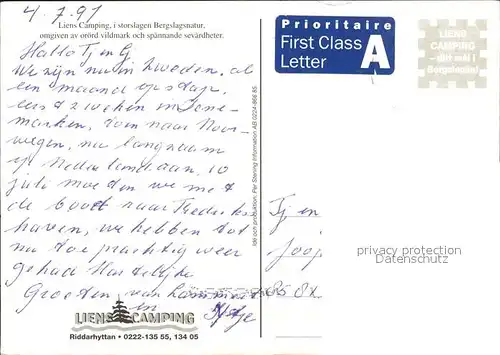 4.7.97
Liens Camping, i storslagen Bergslagsnatur,
omgiven av orörd vildmark och spännande sevärdheter.
Prioritaire
First Class
Letter
A
LIENS
CAMPING
- ditt mål i
Bergslagen!
Hallo Tj en G
We zijn nu in Zweden, al
een maand op stap,
eerst 2 weken in Dene-
marken, toen naar Noor-
wegen, nu langzaam
op Nederland aan. 10
juli moeten we met
de boot naar Frederiks
haven, we hebben tot
nu toe prachtig weer
gehad Hartelijke
Groeten van
en
Tj en
privacy protection
Datenschutz
Idé och produktion: Per Stening Information AB 0224-866 85
LIENS CAMPING
Riddarhyttan • 0222-135 55, 134 05